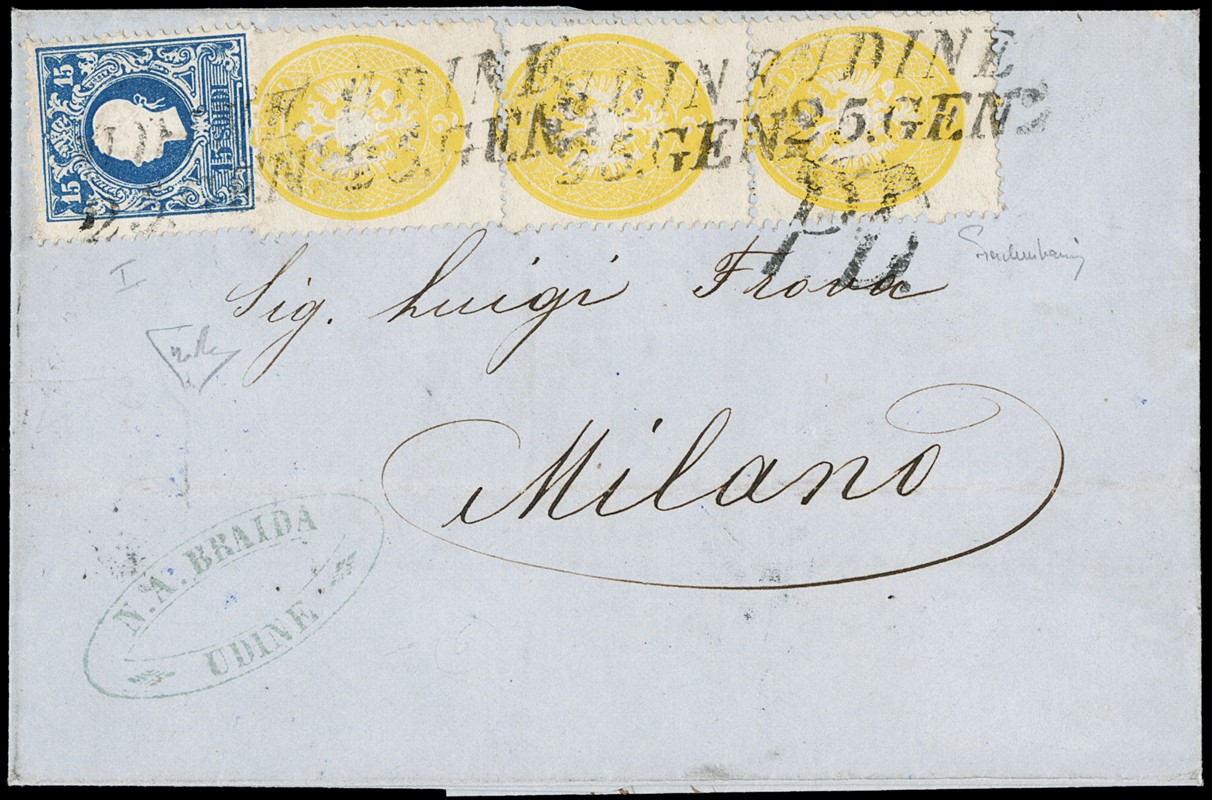 15 15
15 SOLDI 15
15
UDINE UDINE UDINE
25.GEN 25.GEN 25.GEN
P.D.
I
Sig. Luigi Frova
Milano
N. A. BRAIDA
UDINE